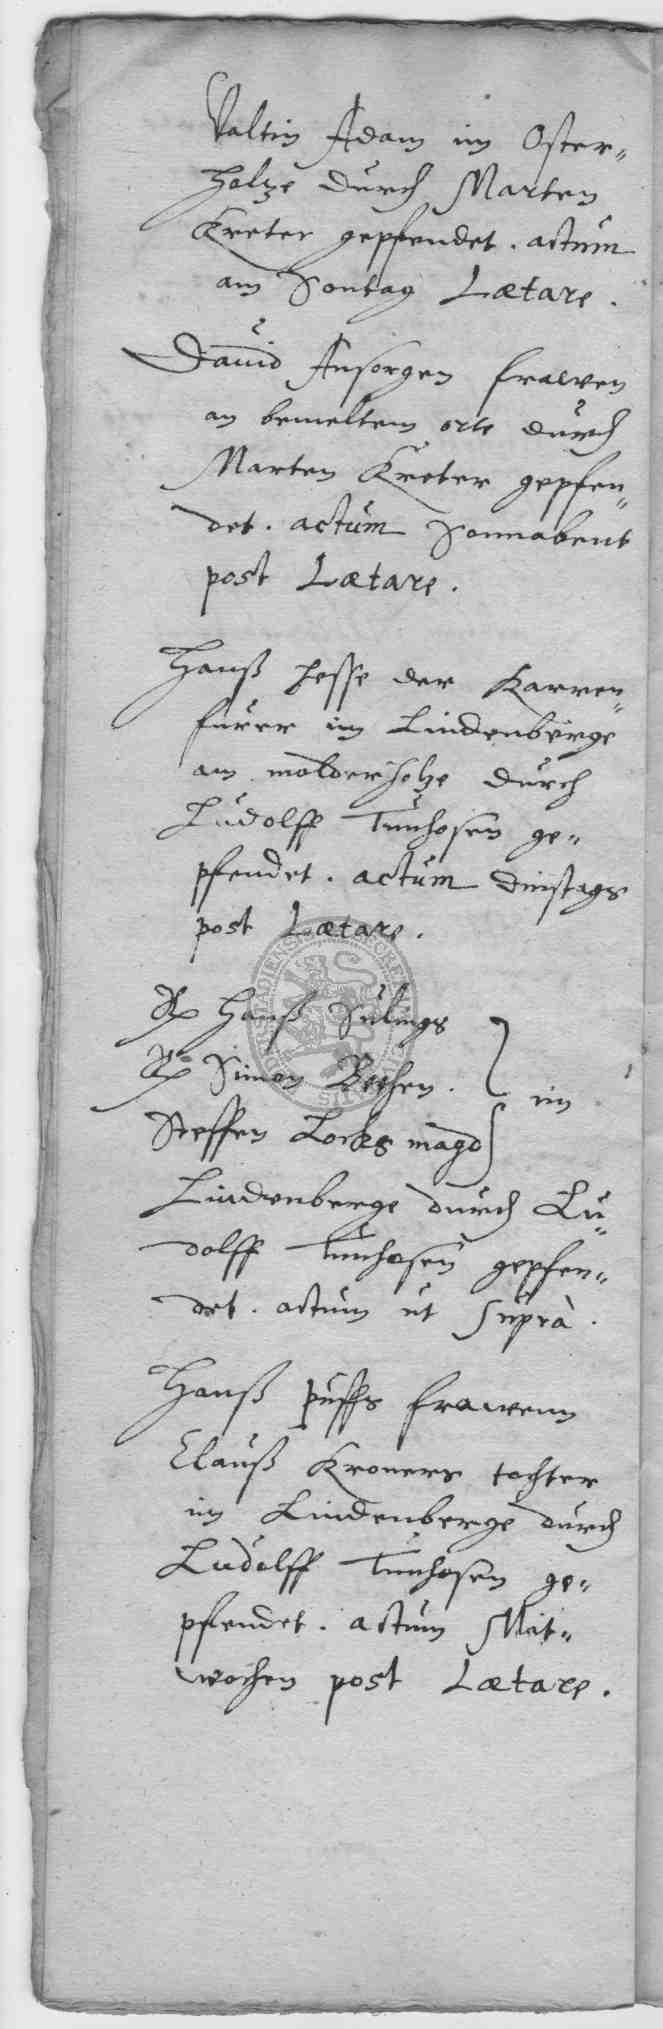 Valtin Adam im Oster„
holze durch Marten
Kreter gepfendet. actum
am Sontag Lætare.
David Ansorgen frawen
an bemeltem orte durch
Marten Kreter gepfen„
det. actum Sonnabent
post Lætare.
Hanß Hesse der Karren„
fürer im Lindenberge
am molderholze durch
Ludolff Tunhosen ge„
pfendet. actum dinstags
post Lætare.
Hanß Sulings
Simon Bethen. } im
Steffen Lockes magd
Lindenberge durch Lu„
dolff Tunhosen gepfen„
det. actum ut suprà.
Hanß puffs frawenn
Clauß Kroners tochter
im Lindenberge durch
Ludolff Tunhosen ge„
pfendet. actum Mit„
wochen post Lætare.